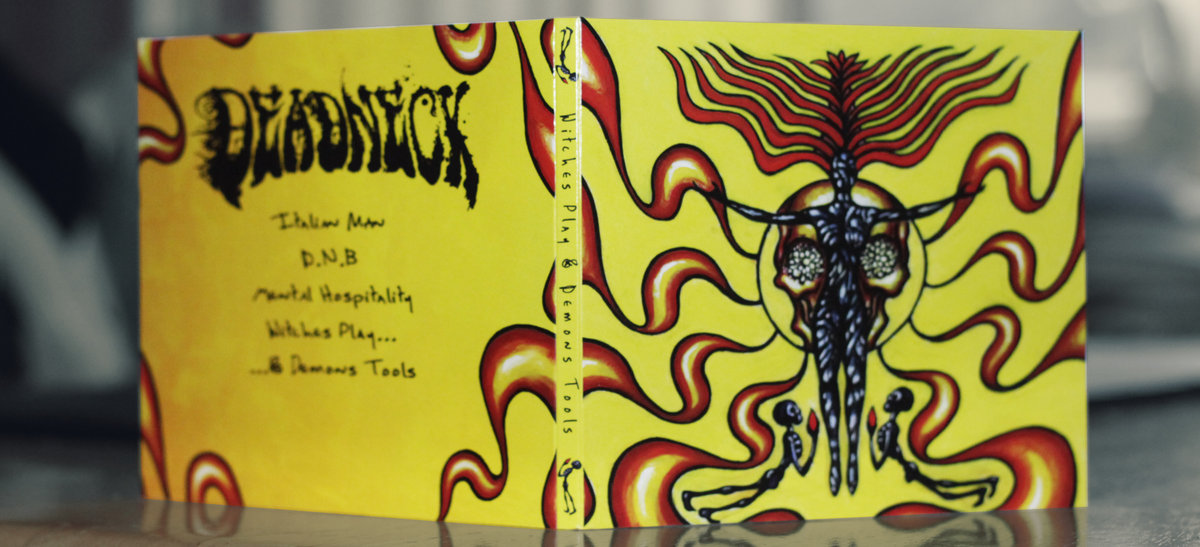 DEADNECK
Italian Man
D.N.B
Mental Hospitality
Witches Play...
...& Demons Tools
Witches Play & Demons Tools